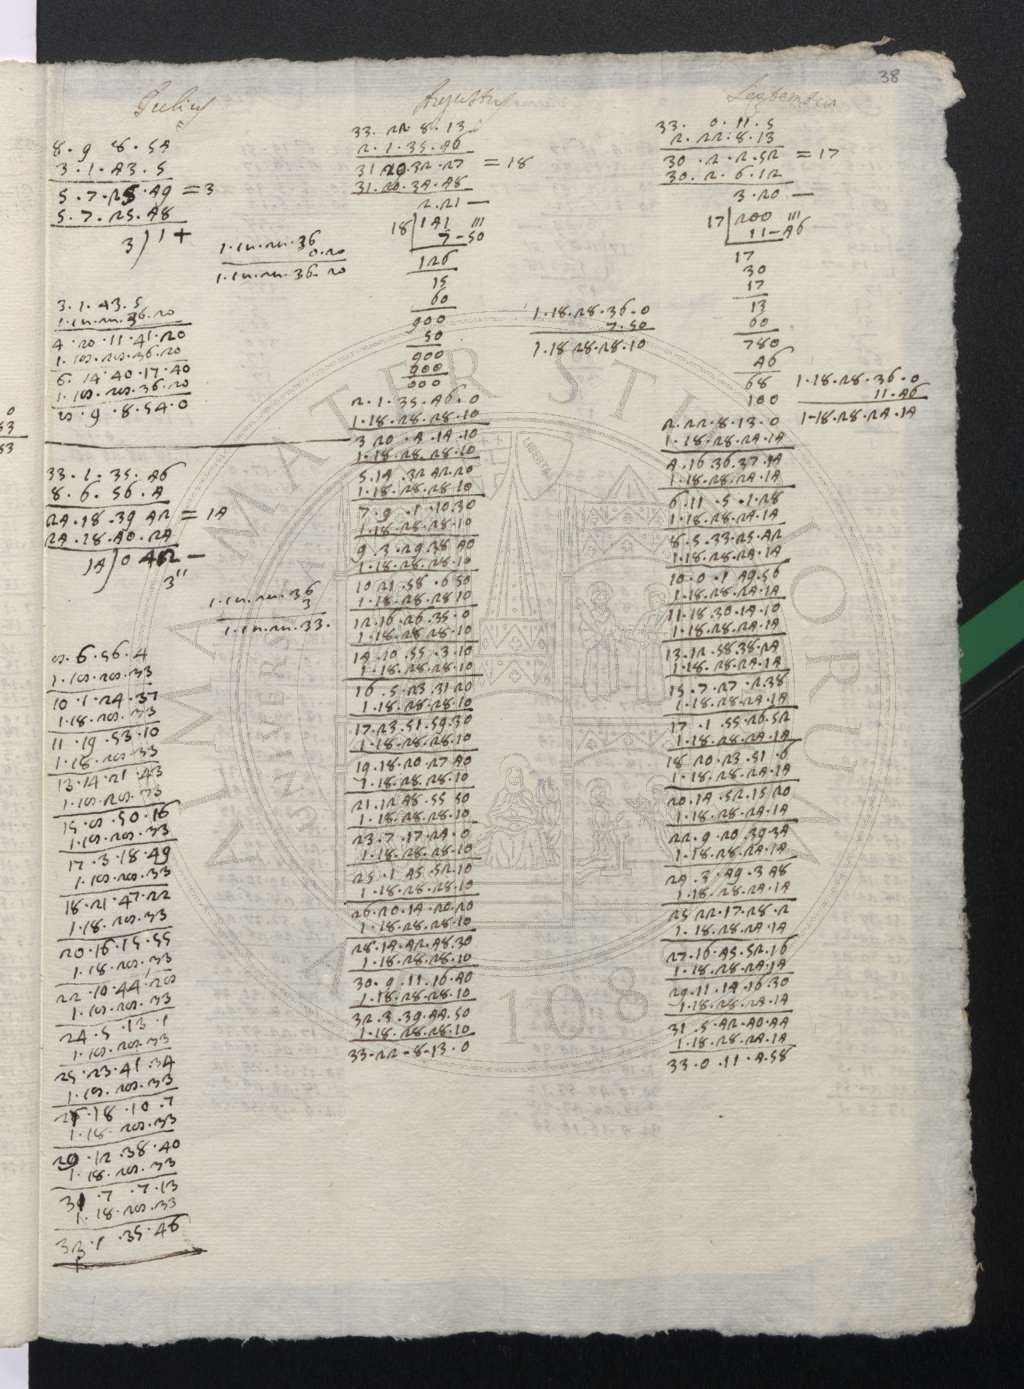 38
Julius
8.9 8.54
3.1.43.5
5.7.25.49 = 3
5.7.25.48
3)1+
1.18.28.36
0.20
1.18.28.36.20
3.1.43.5
1.18.28.36.20
4.20.11.41.20
1.18.28.36.20
6.14.40.17.40
1.18.28.36.20
8.9.8.54.0
0
53
53
33.1.35.46
8.6.56.4
24.18.39 42 = 14
24.18.40.24
14)0 42 —
3"
1.18.28.36
3
1.18.28.33.
8.6.56.4
1.18.28.33
10.1.24.37
1.18.28.33
11.19.53.10
1.18.28.33
13.14.21.43
1.18.28.33
15.8.50.16
1.18.28.33
17.3.18.49
1.18.28.33
18.21.47.22
1.18.28.33
20.16.15.55
1.18.28.33
22.10.44.28
1.18.28.33
24.5.13.1
1.18.28.33
25.23.41.34
1.18.28.33
27.18.10.7
1.18.28.33
29.12.38.40
1.18.28.33
31.7.7.13
1.18.28.33
33.1.35.46
Augustus
33.22 8.13
2.1.35.46
31 20 32.27 = 18
31.20.34.48
2.21 —
18|141 '''
7-50
126
15
60
900
50
900
900
000
1.18.28.36.0
7.50
1.18 28.28.10
2.1.35.46.0
1.18.28.28.10
3 20.4.14.10
1.18.28.28.10
5.14.32 42.20
1.18.28.28.10
7.9.1.10.30
1.18.28.28.10
9.3.29.38 40
1.18.28.28.10
10 21.58.6 50
1.18.28.28 10
12.16.26.35.0
1.18.28 28.10
14 10.55.3.10
1.18.28.28.10
16.5.23.31.20
1.18.28.28.10
17.23.51.59.30
1.18.28.28.10
19.18.20.27 40
1.18.28.28.10
21.12 48.55 50
1.18.28.28.10
23.7.17.24.0
1.18.28.28.10
25.1.45.52.10
1.18.28.28.10
26.20.14.20.20
1.18.28.28.10
28.14.42.48.30
1.18.28.28.10
30.9.11.16.40
1.18.28.28.10
32.3.39.44.50
1.18.28.28.10
33.22.8.13.0
September
33.0.11.5
2.22:8.13
30.2.2.52 = 17
30.2.6.12
3.20 —
17|200 '''
11-46
17
30
17
13
60
780
46
68
100
1.18.28.36.0
11.46
1-18.28.24.14
2.22.8.13.0
1.18.28.24.14
4.16.36.37.14
1.18.28.24.14
6.11.5.1.28
1.18.28.24.14
8.5.33.25.42
1.18.28.24.14
10.0.1 49.56
1.18.28.24.14
11.18.30.14.10
1.18.28.24.14
13.12.58.38.24
1.18.28.24.14
15.7.27.2.38
1.18.28.24.14
17.1.55.26.52
1.18.28.24.14
18 20.23.51.6
1.18.28.24.14
20.14.52.15.20
1.18.28.24.14
22.9.20.39.34
1.18.28.24.14
24.3.49.3.48
1.18.28.24.14
25 22.17.28.2
1.18.28.24.14
27.16.45.52.16
1.18.28.24.14
29.11.14.16.30
1.18.28.24.14
31.5.42.40.44
1.18.28.24.14
33.0.11.4.58
ALMA MATER STUDIORUM
UNIVERSITÀ
A.D. 1088